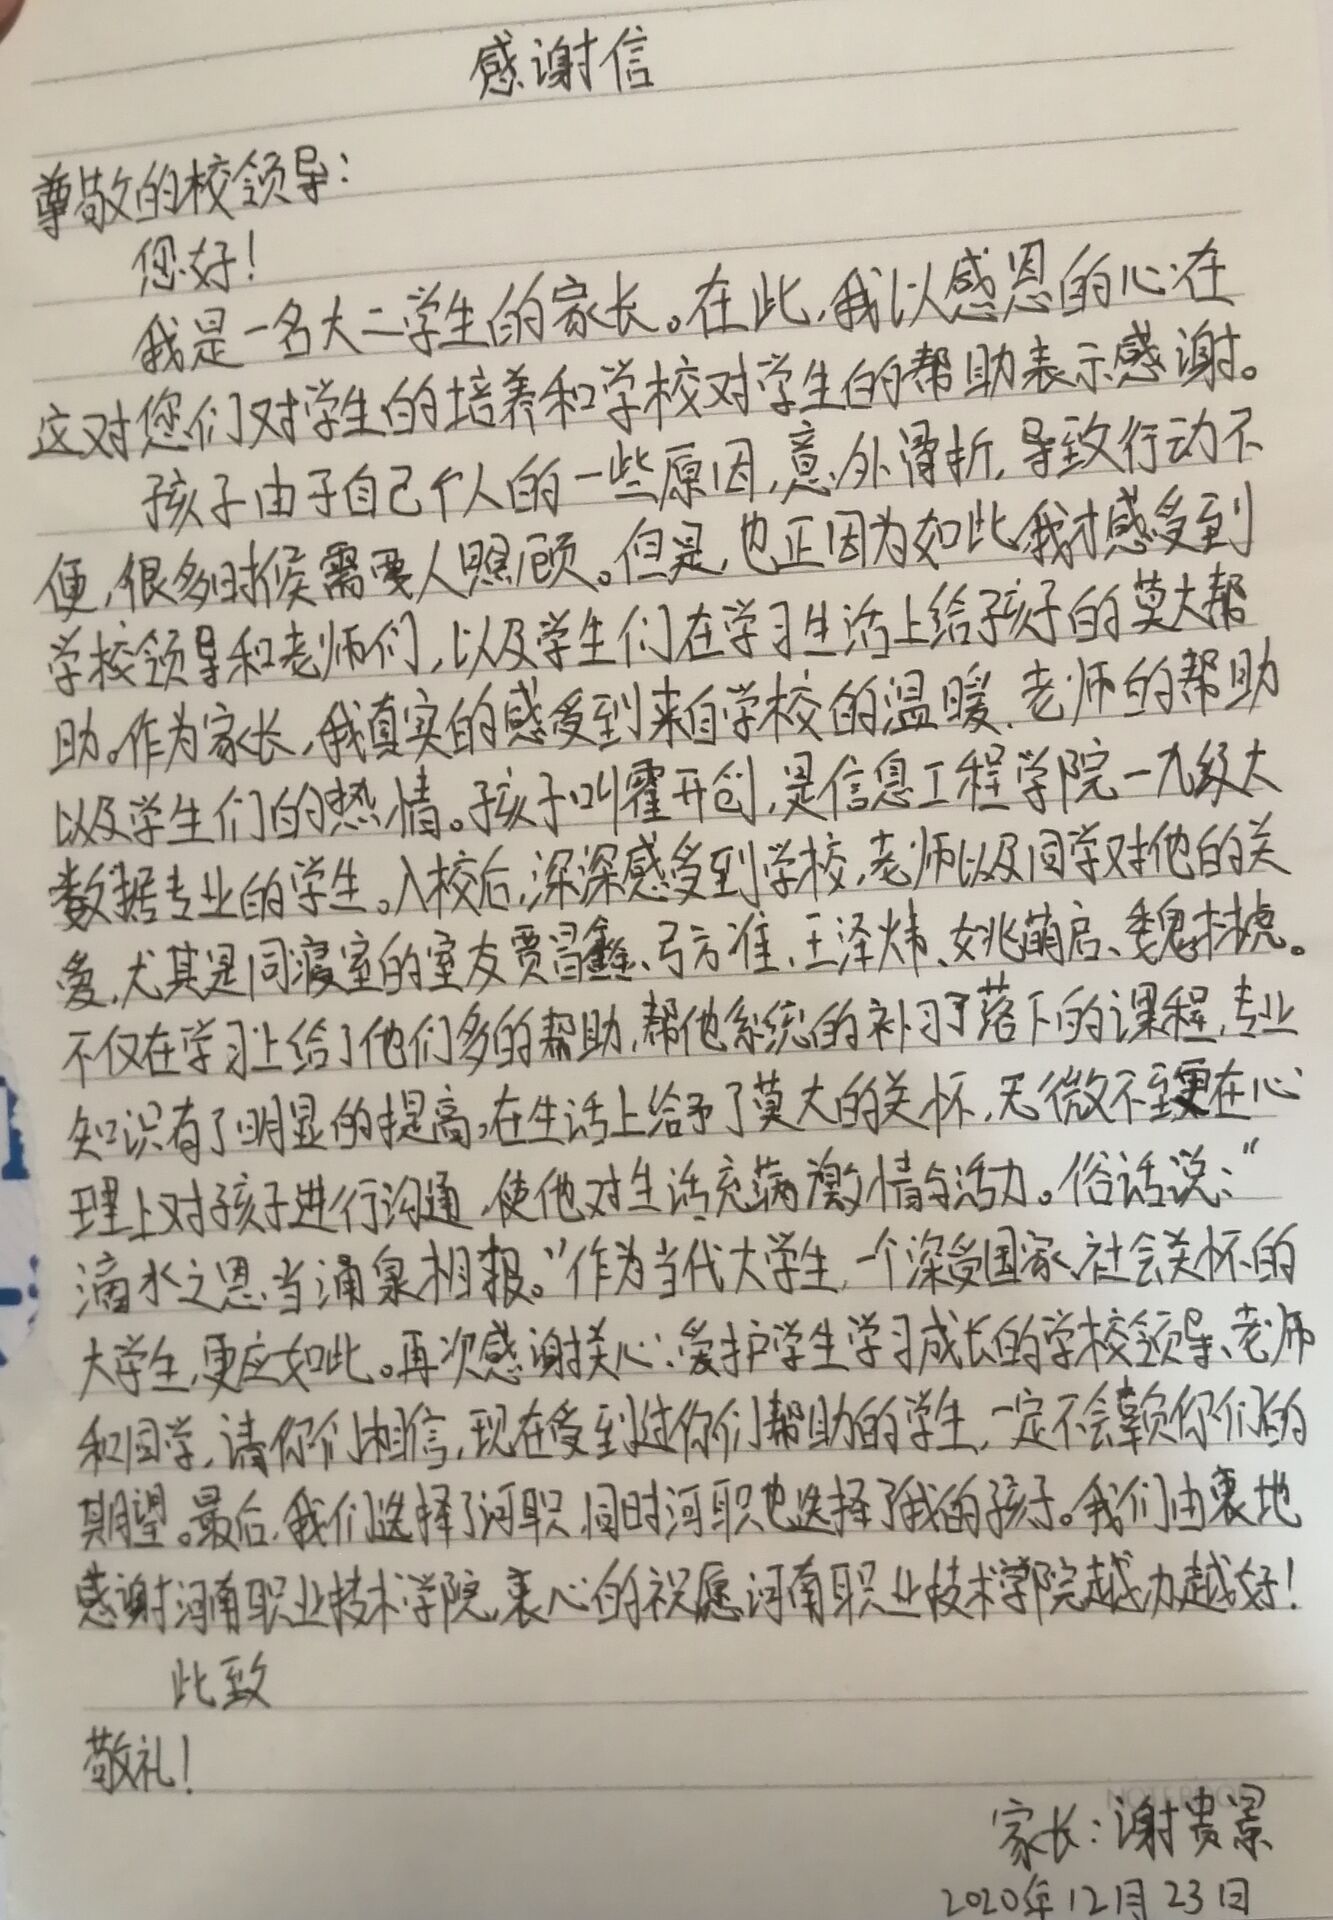 感谢信
尊敬的校领导：
您好！
我是一名大二学生的家长。在此，我以感恩的心在
这对您们对学生的培养和学校对学生的帮助表示感谢。
孩子由于自己个人的一些原因，意外骨折，导致行动不
便，很多时候需要人照顾。但是，也正因为如此，我才感受到
学校领导和老师们，以及学生们在学习生活上给孩子的莫大帮
助。作为家长，我真实的感受到来自学校的温暖、老师的帮助
以及学生们的热情。孩子叫霍开创，是信息工程学院一九级大
数据专业的学生。入校后，深深感受到学校，老师以及同学对他的关
爱，尤其是同寝室的室友贾冒鑫、弓方准、王泽炜、姚萌启、魏林虎。
不仅在学习上给了他们多的帮助，帮他系统的补习了落下的课程，专业
知识有了明显的提高，在生活上给予了莫大的关怀，无微不至更在心
理上对孩子进行沟通，使他对生活充满激情与活力。俗话说：“
滴水之恩，当涌泉相报。”作为当代大学生，一个深受国家、社会关怀的
大学生，更应如此。再次感谢关心、爱护学生学习成长的学校领导、老师
和同学，请你们相信，现在受到过你们帮助的学生，一定不会辜负你们的
期望。最后，我们选择了河职，同时河职也选择了我的孩子。我们由衷地
感谢河南职业技术学院，衷心的祝愿河南职业技术学院越办越好！
此致
敬礼！
NOTEBOOK
家长：谢贵景
2020年12月23日